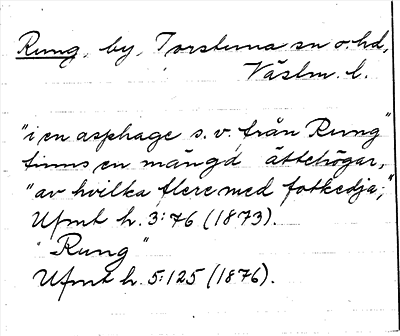 Rung, by, Torstuna sn o. hd,
Västm. l.
"i en asphage s. v. från Rung"
finns en mängd ättehögar,
"av hvilka flere med fotkedja;"
Ufmt h. 3:76 (1873).
"Rung"
Ufmt h. 5:125 (1876).